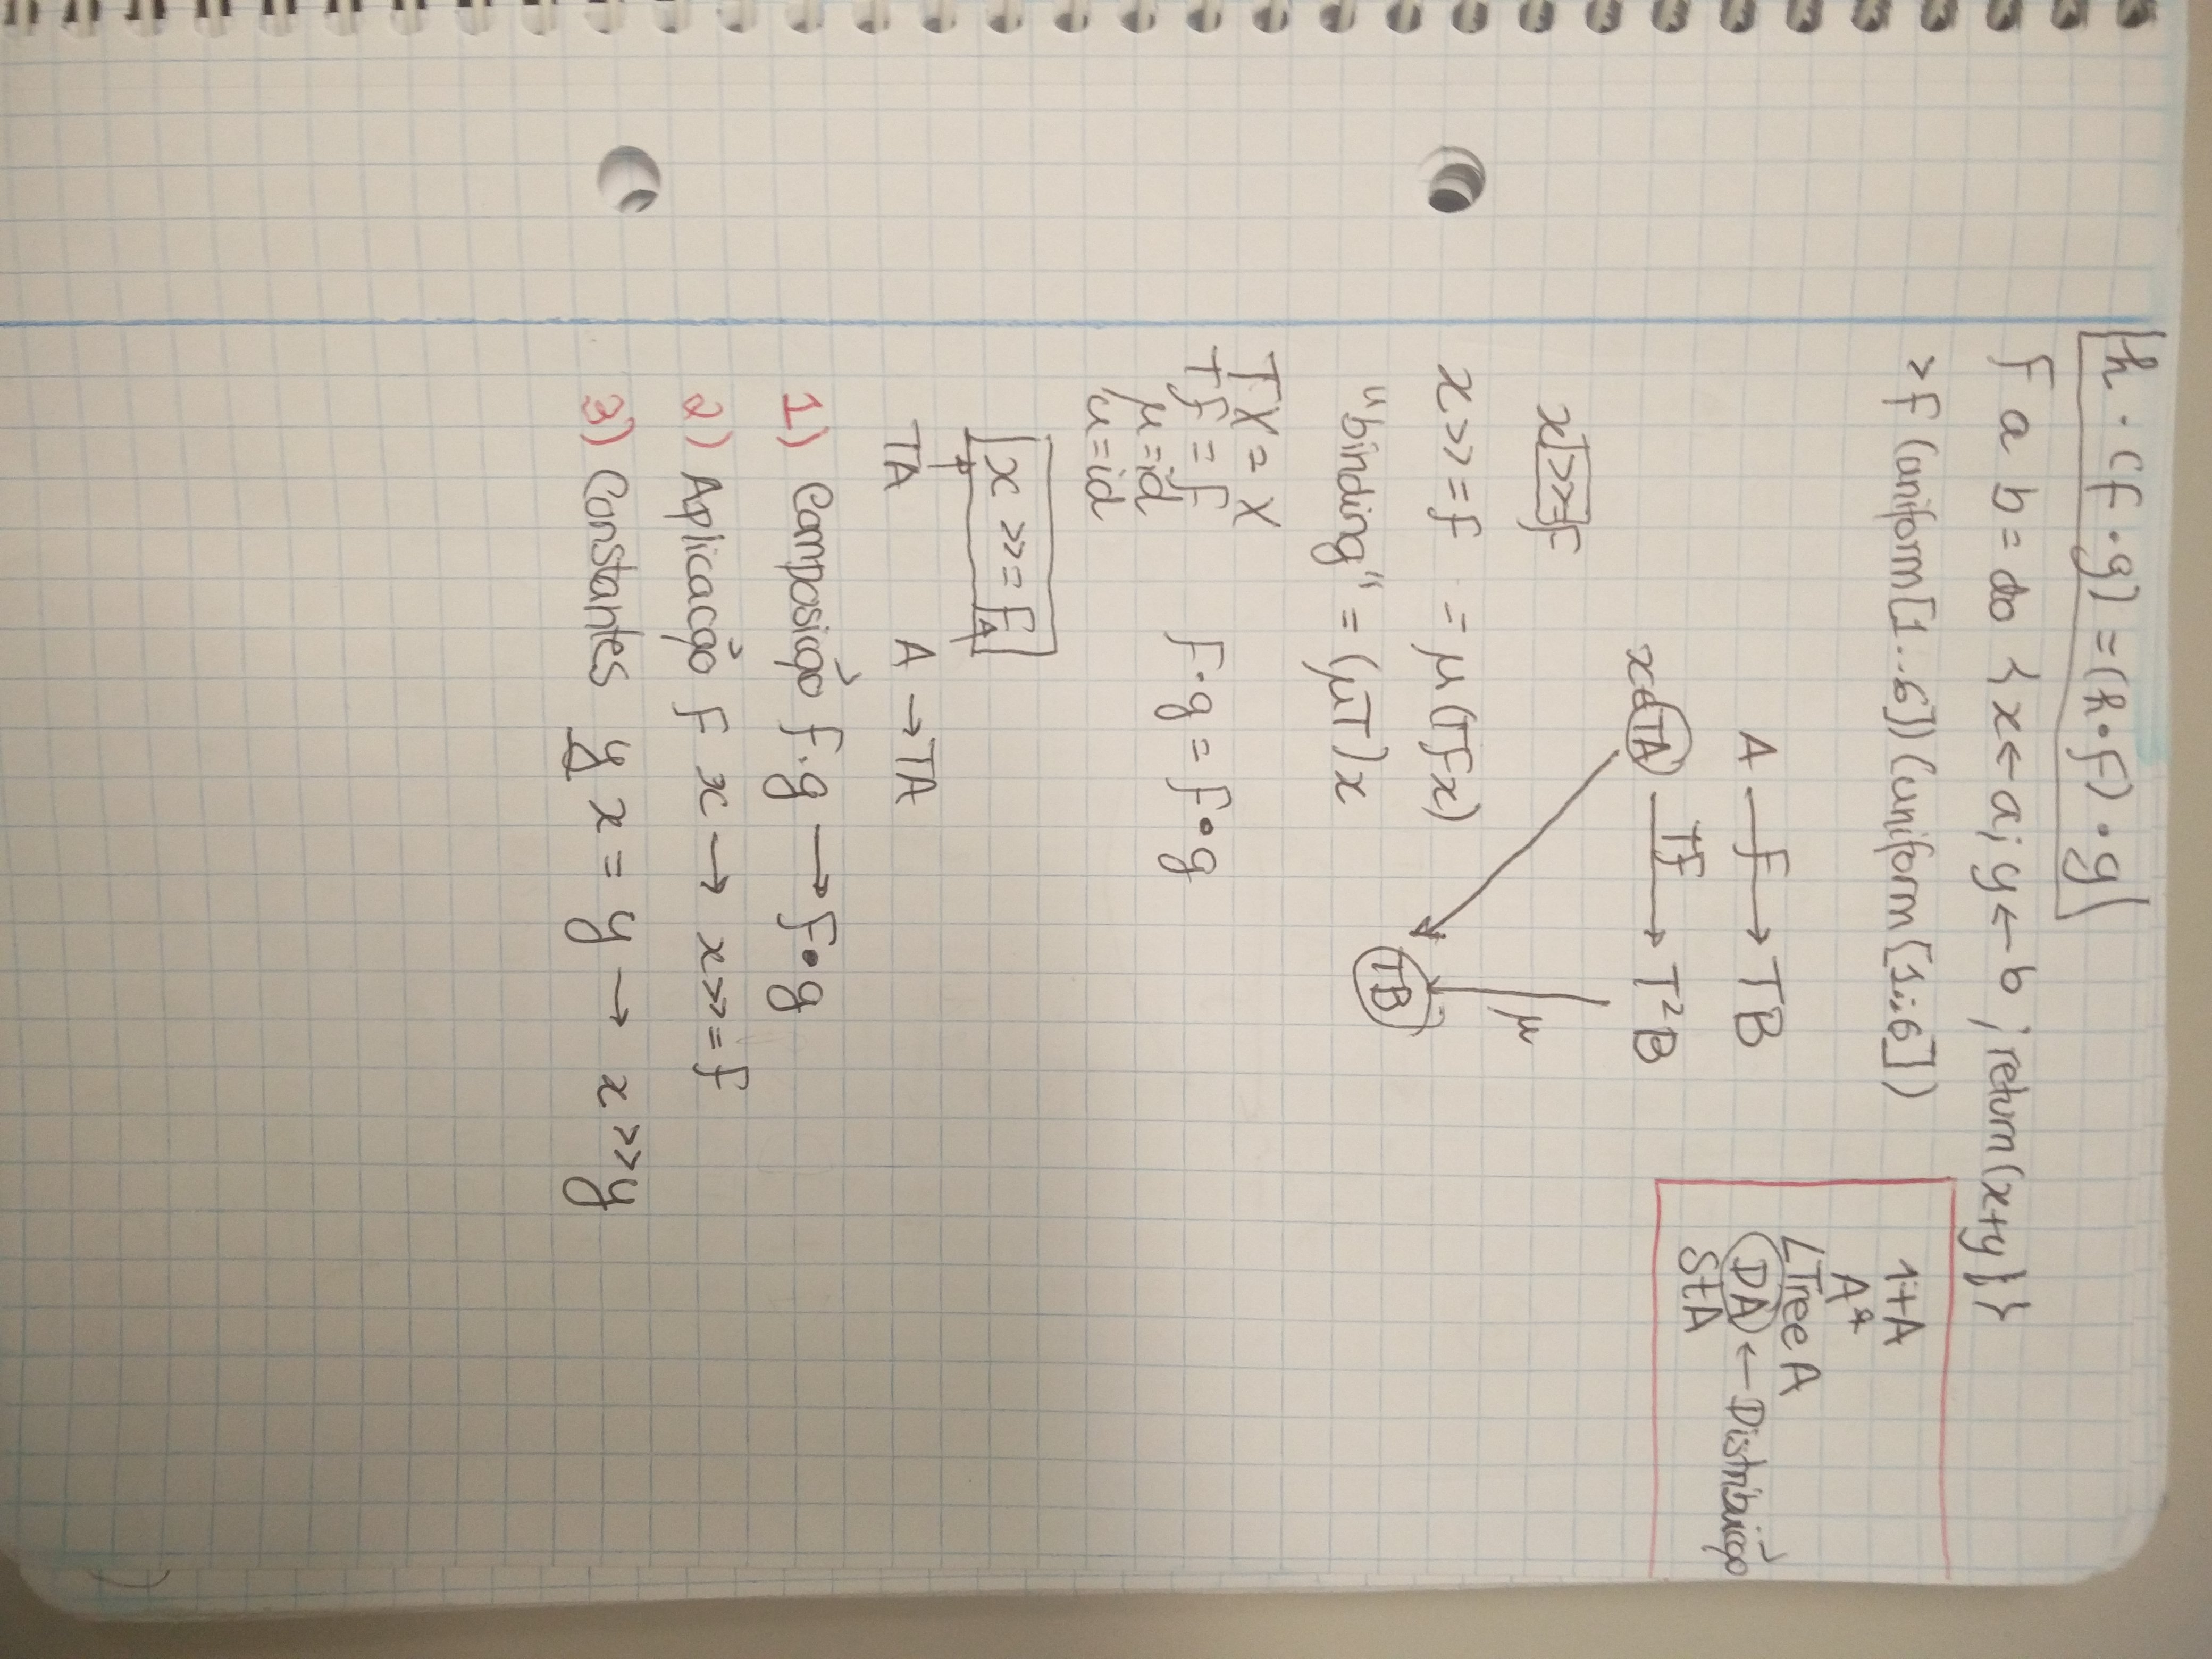 h · (f · g) = (h • f) • g
f a b = do {x ← a; y ← b ; return (x+y)}
> f (uniform [1..6]) (uniform [1..6])
1+A
A*
LTree A
DA ← Distribuição
StA
A —f→ TB
x∈TA —Tf→ T²B
x >>= f
μ
x >>= f = μ (Tf x)
TB
"binding" = (μT) x
TX = X
Tf = f f·g = f•g
μ = id
u = id
x >>= f
TA A → TA
1) Composição f.g → f•g
2) Aplicação f x → x >>= f
3) Constantes y x = y → x >> y